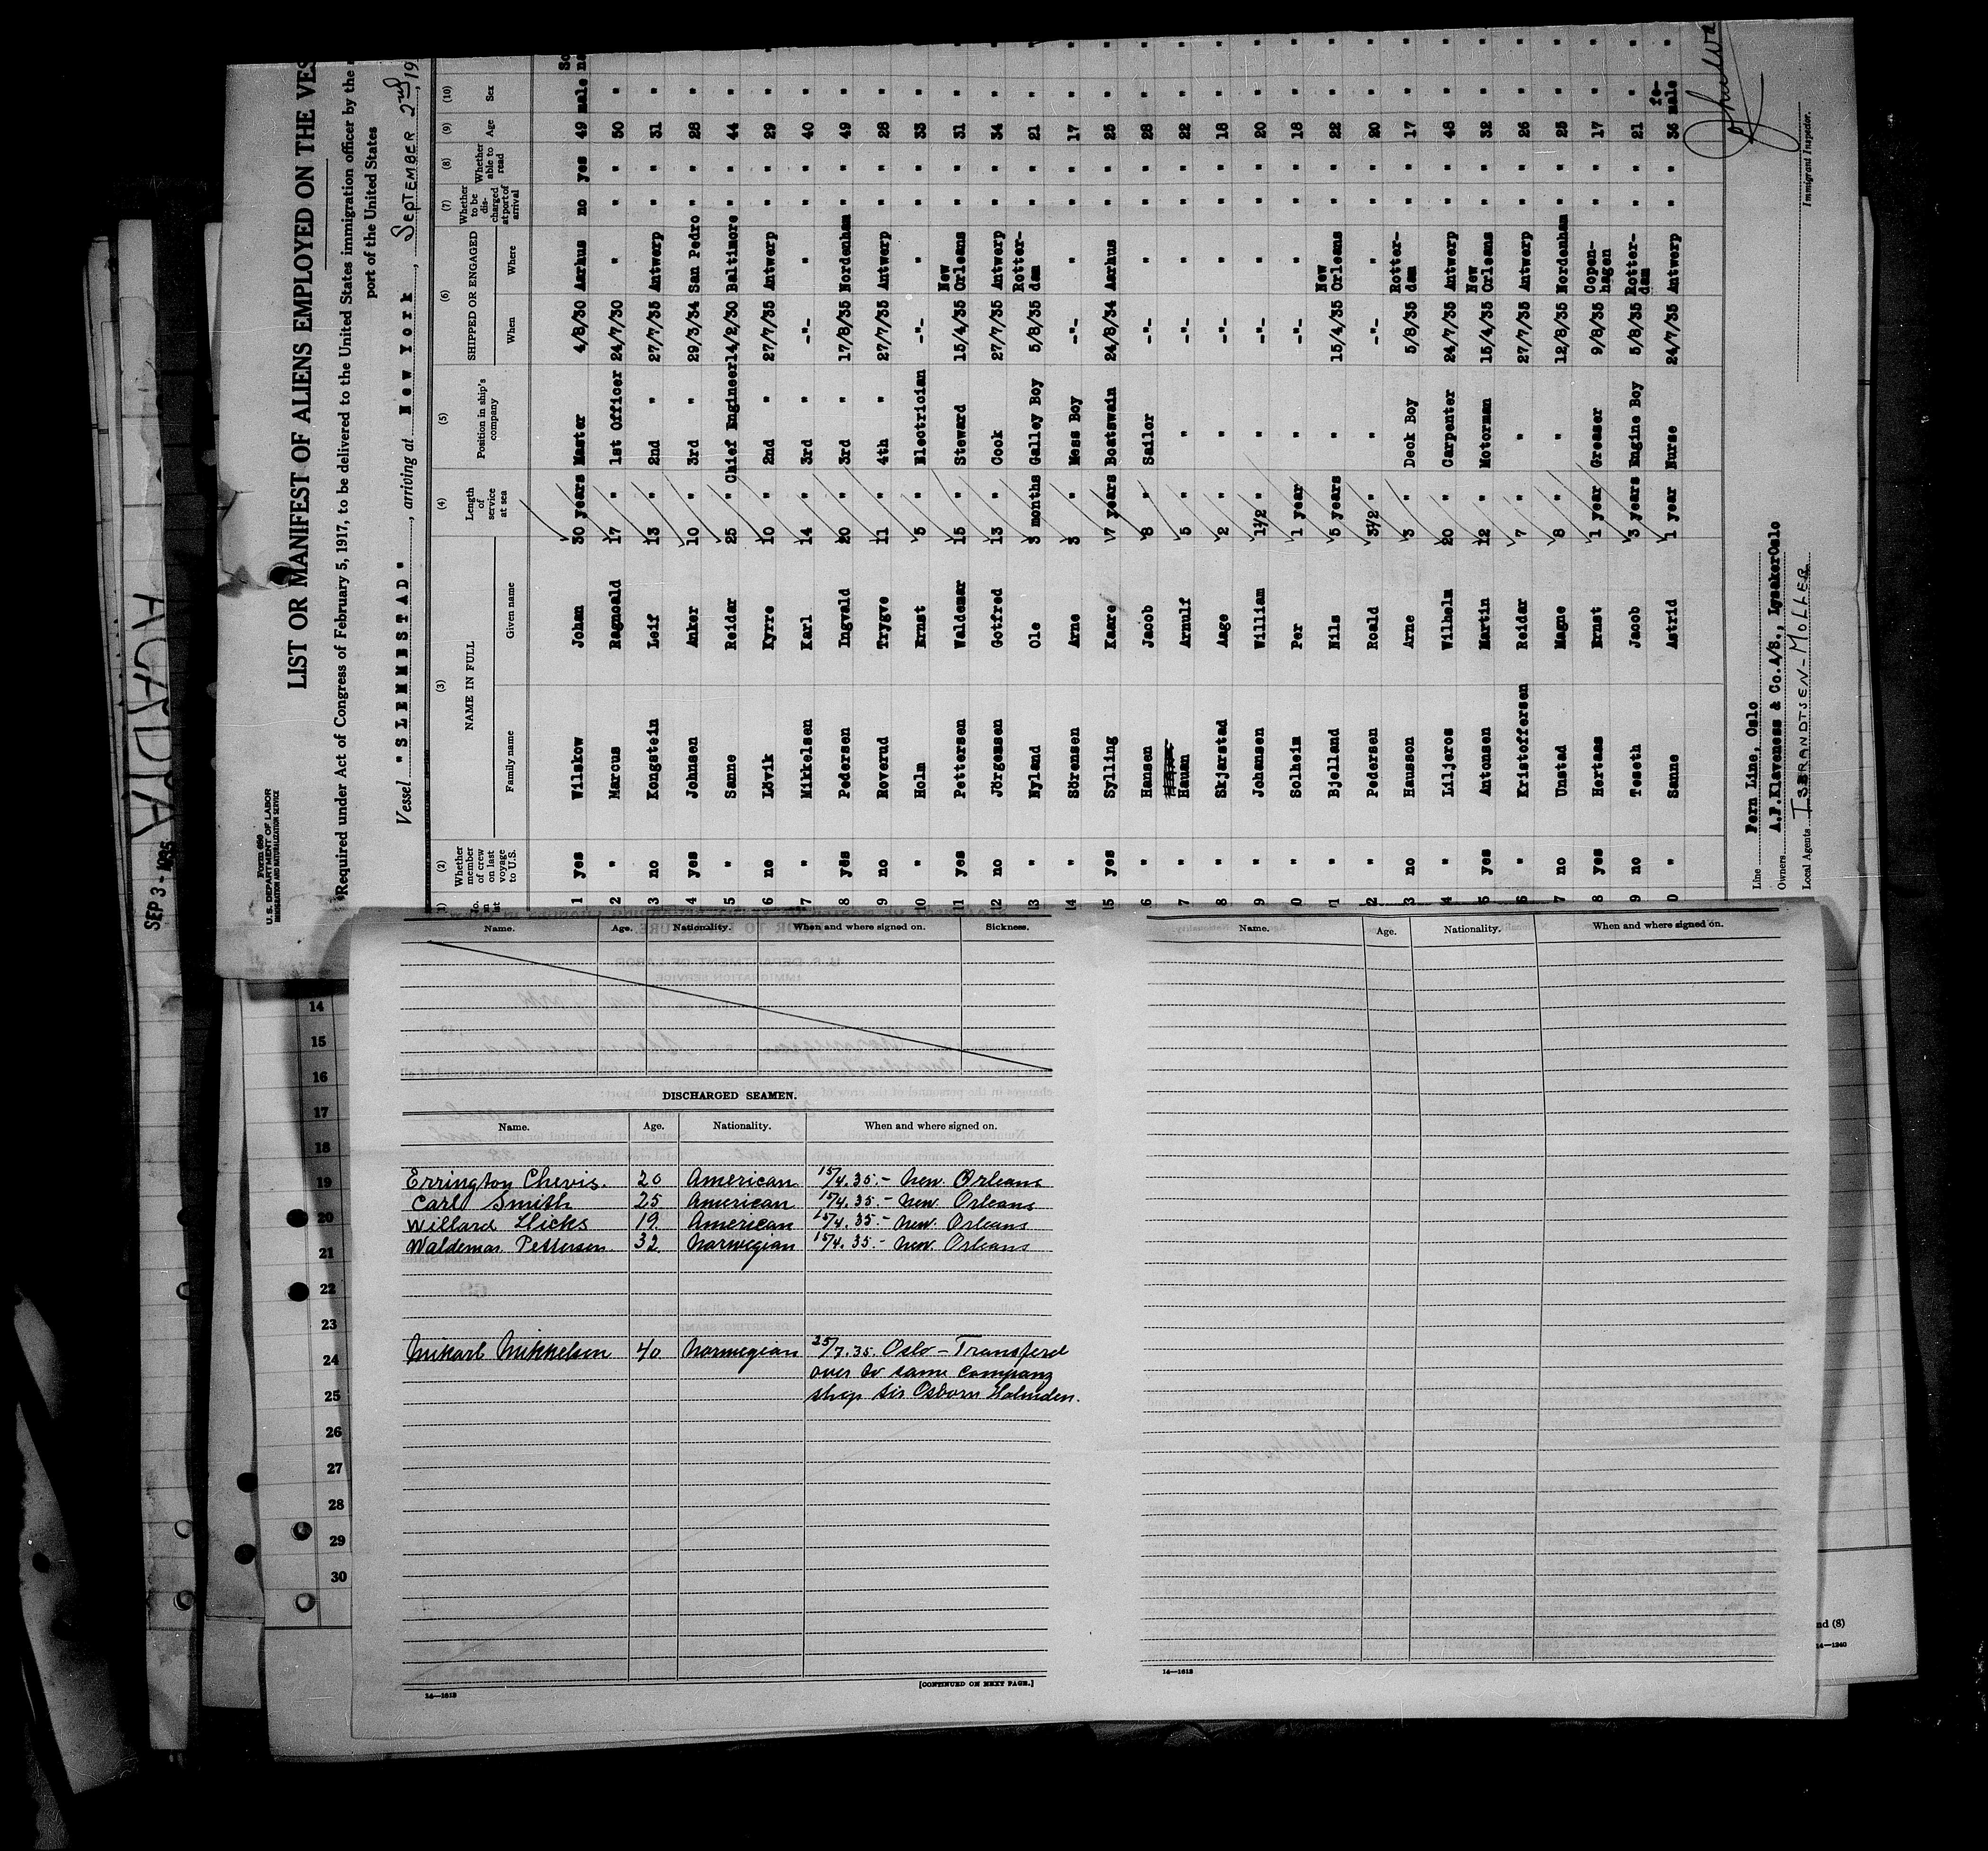 ACADIA
SEP 3 - 1935
Form 689
U. S. DEPARTMENT OF LABOR
IMMIGRATION AND NATURALIZATION SERVICE
LIST OR MANIFEST OF ALIENS EMPLOYED ON THE VES
Required under Act of Congress of February 5, 1917, to be delivered to the United States immigration officer by the
port of the United States
Vessel "SLEMMESTAD", arriving at New York, SEPTEMBER 2nd, 19
(2) (3) (4) (5) (6) (7) (8) (9) (10)
Whether member of crew on last voyage to U.S. NAME IN FULL Family name Given name Length of service at sea Position in ship's company SHIPPED OR ENGAGED When Where Whether to be discharged at port of arrival Whether able to read Age Sex
1 yes Wilskow Johan 30 years Master 4/8/30 Aarhus no yes 49 male
2 " Marcus Ragnoald 17 " 1st Officer 24/7/30 " " " 50 "
3 no Kongstein Leif 13 " 2nd " 27/7/35 Antwerp " " 31 "
4 yes Johnsen Anker 10 " 3rd " 29/3/34 San Pedro " " 28 "
5 " Sanne Reidar 25 " Chief Engineer 14/2/30 Baltimore " " 44 "
6 no Lövik Kyrre 10 " 2nd " 27/7/35 Antwerp " " 29 "
7 " Mikkelsen Karl 14 " 3rd " -"- " " " 40 "
8 yes Pedersen Ingvald 20 " 3rd " 17/8/35 Nordenham " " 49 "
9 no Roverud Trygve 11 " 4th " 27/7/35 Antwerp " " 28 "
10 " Holm Ernst 5 " Electrician -"- " " " 33 "
11 yes Pettersen Waldemar 15 " Steward 15/4/35 New Orleans " " 31 "
12 no Jörgensen Gotfred 13 " Cook 27/7/35 Antwerp " " 34 "
13 " Nyland Ole 3 months Galley Boy 5/8/35 Rotter-dam " " 21 "
14 " Sörensen Arne 3 " Mess Boy -"- " " " 17 "
15 yes Sylling Kaare 7 years Boatswain 24/8/34 Aarhus " " 25 "
6 " Hansen Jacob 8 " Sailor -"- " " " 28 "
7 " Hauan Arnulf 5 " " -"- " " " 22 "
8 " Skjarstad Aage 2 " " -"- " " " 18 "
9 " Johansen William 1 1/2 " " -"- " " " 20 "
0 " Solheim Per 1 year " -"- " " " 18 "
1 " Bjelland Nils 5 years " 15/4/35 New Orleans " " 22 "
2 " Pedersen Roald 3 1/2 " " -"- " " " 20 "
3 no Hausson Arne 3 " Deck Boy 5/8/35 Rotter-dam " " 17 "
4 " Liljeros Wilhelm 20 " Carpenter 24/7/35 Antwerp " " 48 "
5 yes Antonsen Martin 12 " Motorman 15/4/35 New Orleans " " 32 "
6 " Kristoffersen Reidar 7 " " 27/7/35 Antwerp " " 26 "
7 no Unstad Magne 8 " " 12/8/35 Nordenham " " 25 "
8 yes Hertaas Ernst 1 year Greaser 9/8/35 Copen-hagen " " 17 "
9 no Teseth Jacob 3 years Engine Boy 5/8/35 Rotter-dam " " 21 "
0 " Sanne Astrid 1 year Nurse 24/7/35 Antwerp " " 36 fe-male
Line Fern Line, Oslo
Owners A.F.Klaveness & Co.A/S., LysakerOslo
Local Agents ISBRANDTSEN-MOLLER
Immigrant Inspector.
Name. Age. Nationality. When and where signed on. Sickness.
DISCHARGED SEAMEN.
Name. Age. Nationality. When and where signed on.
Errington Chevis. 20 American 15/4.35.- New. Orleans
Carl Smith 25 American 15/4.35.- New. Orleans
Willard Hicks 19 American 15/4.35.- New. Orleans
Waldemar Pettersen 32 Norwegian 15/4.35.- New. Orleans
Mikarl Mikkelsen 40 Norwegian 25/7.35. Oslo - Transfered
over to same company
ship Sir Osborn Holmden.
14—1613
[CONTINUED ON NEXT PAGE.]
Name. Age. Nationality. When and where signed on.
14—1613
14
15
16
17
18
19
20
21
22
23
24
25
26
27
28
29
30
nd (8)
14—1240